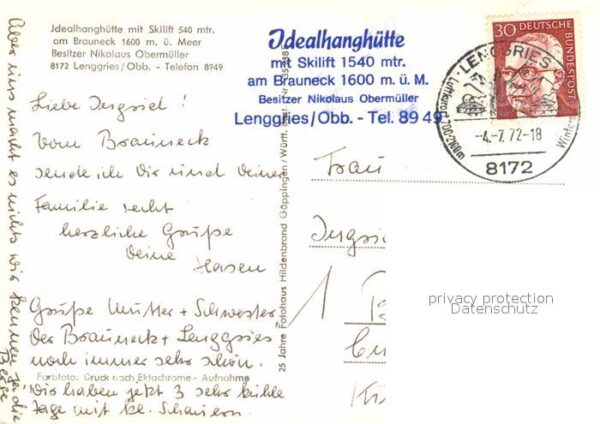 Idealhanghütte mit Skilift 540 mtr.
am Brauneck 1600 m. ü. Meer
Besitzer Nikolaus Obermüller
8172 Lenggries/Obb. - Telefon 8949
Liebe
Vom Brauneck
sende ich Dir und Deiner
Familie recht
herzliche Grüße
Deine
Hasen
Grüße Mutter + Schwester
Der Brauneck + Lenggries
noch immer sehr schön.
Farbfoto: Druck nach Ektachrome - Aufnahme
Wir haben jetzt 3 sehr kühle
Tage mit kl. Schauern.
Aber uns macht es nichts wir kennen ja die
Berge
25 Jahre Fotohaus Hildenbrand Göppingen/Württ.
Idealhanghütte
mit Skilift 1540 mtr.
am Brauneck 1600 m. ü. M.
Besitzer Nikolaus Obermüller
Lenggries/Obb. - Tel. 89 49
30 DEUTSCHE
BUNDESPOST
LENGGRIES
Luftkurort
Winters
-4.-7.72-18
8172
Frau
privacy protection
Datenschutz